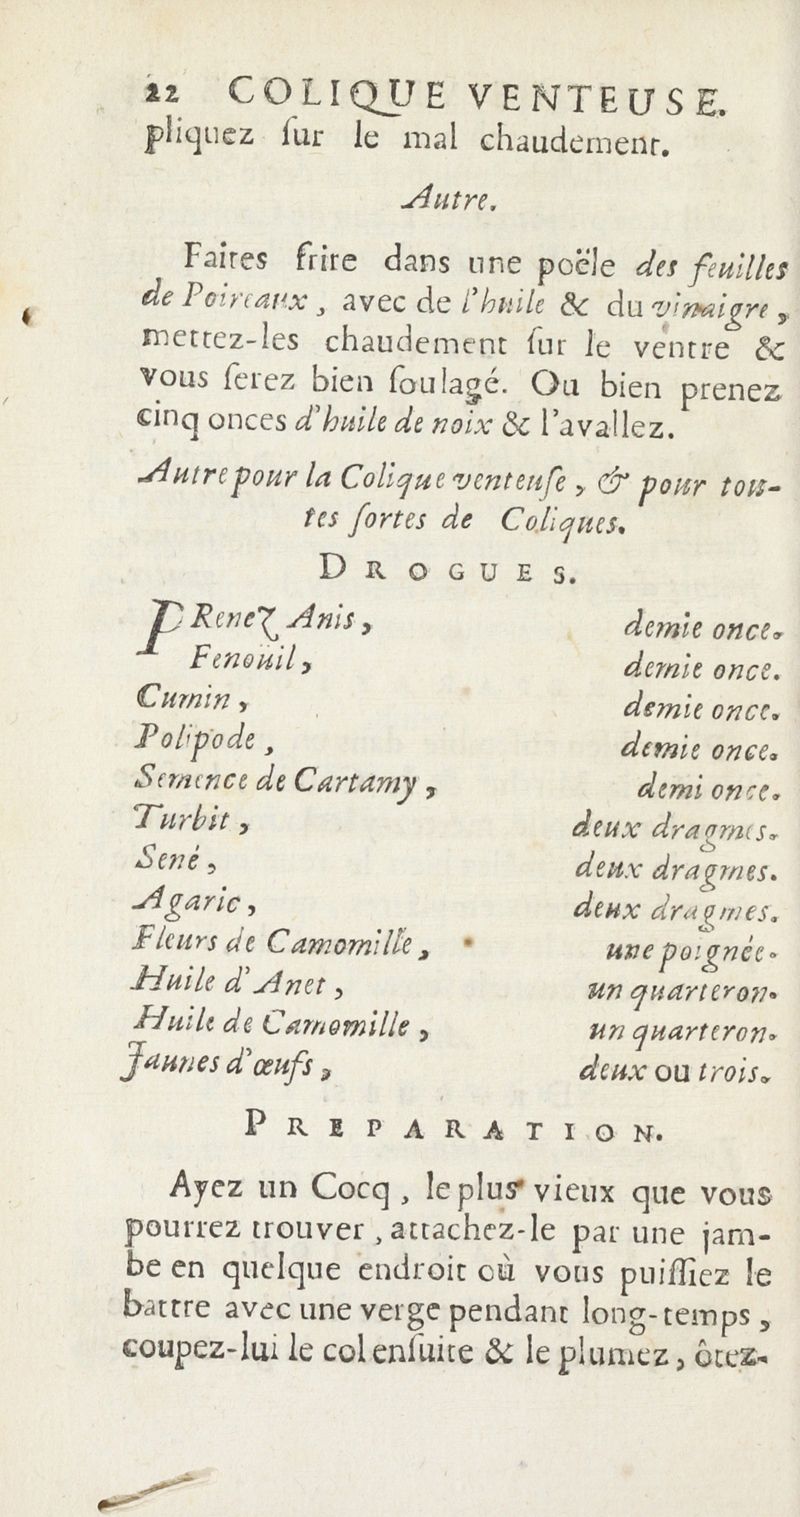 22 COLIQUE VENTEUSE.
pliquez ſur le mal chaudement.
Autre.
Faites frire dans une poële des feuilles
de Poireaux, avec de l'huile & du vinaigre,
mettez-les chaudement ſur le ventre &
vous ſerez bien ſoulagé. Ou bien prenez
cinq onces d'huile de noix & l'avallez.
Autre pour la Colique venteuſe, & pour tou-
tes ſortes de Coliques.
DROGUES.
PRenez Anis, demie once.
Fenoüil, demie once.
Cumin, demie once.
Polipode, demie once.
Semence de Cartamy, demi once.
Turbit, deux dragmes.
Sené, deux dragmes.
Agaric, deux dragmes.
Fleurs de Camomille, une poignée.
Huile d'Anet, un quarteron.
Huile de Camomille, un quarteron.
Jaunes d'œufs, deux ou trois.
PREPARATION.
Ayez un Cocq, le plus vieux que vous
pourrez trouver, attachez-le par une jam-
be en quelque endroit où vous puiſſiez le
battre avec une verge pendant long-temps,
coupez-lui le col enſuite & le plumez, ôtez-